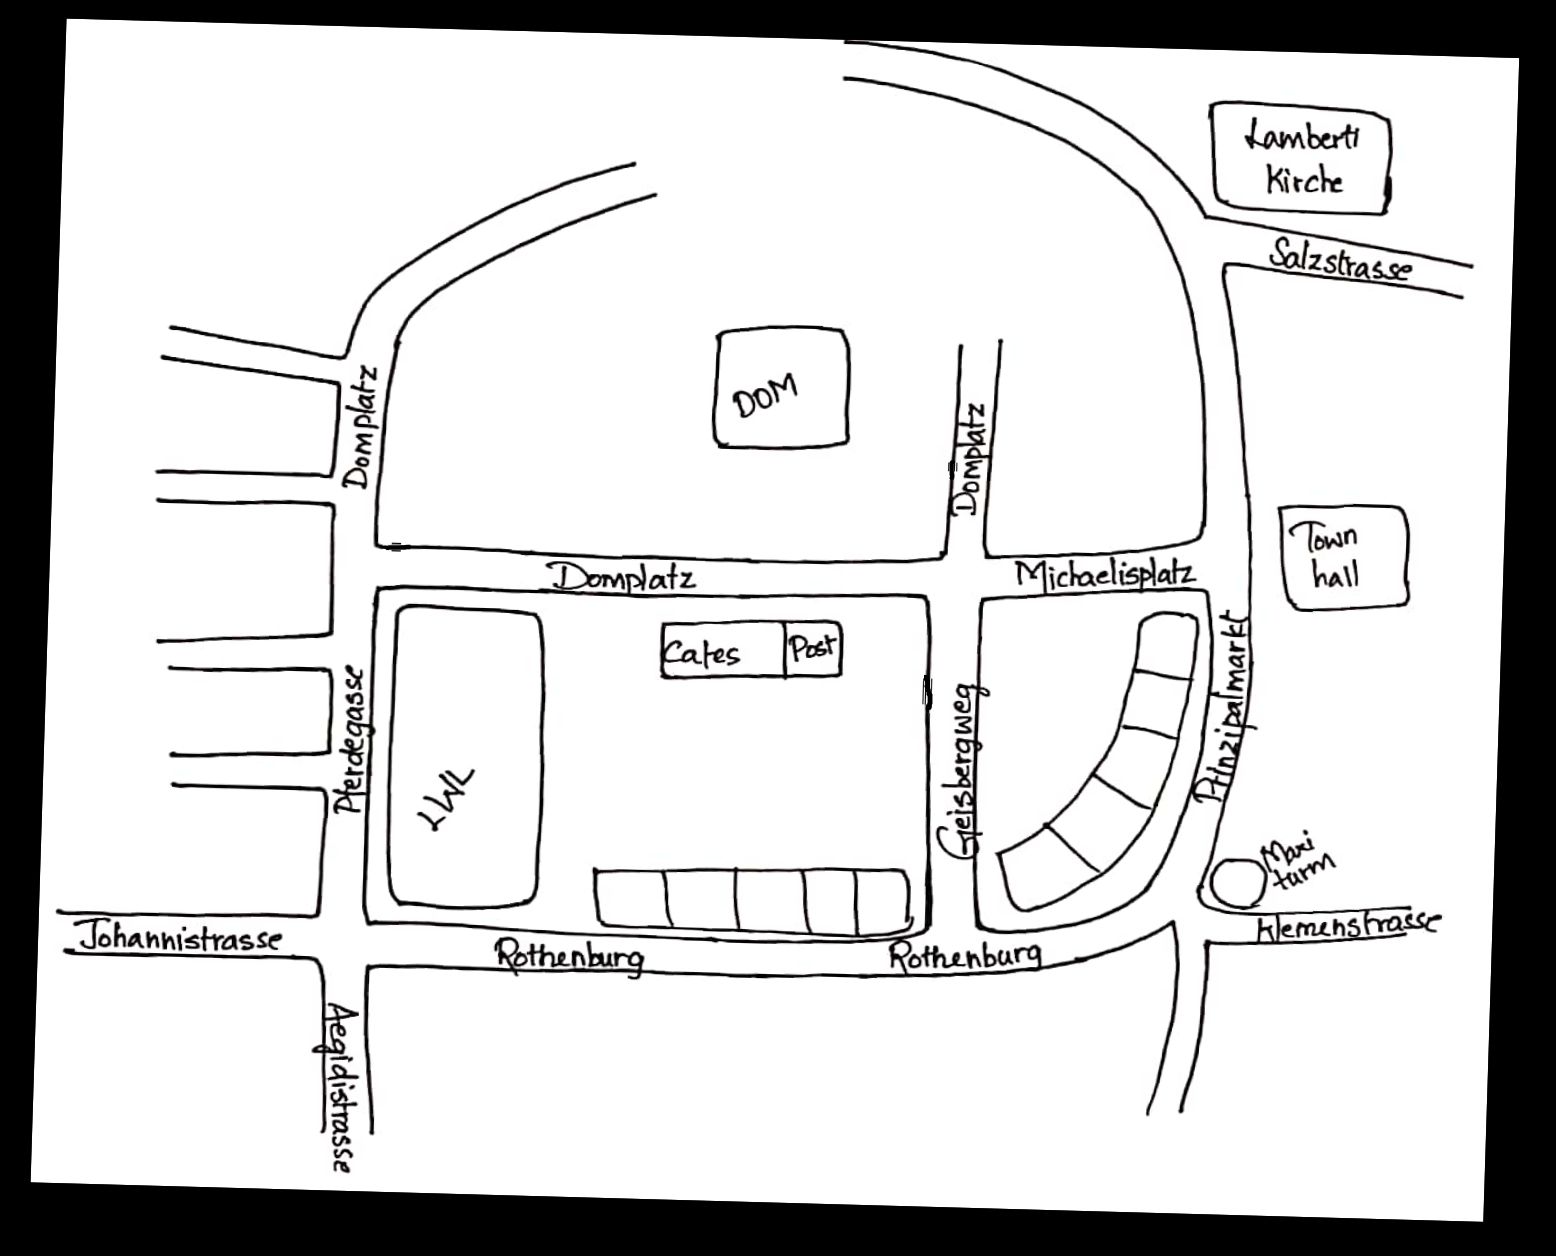 Lamberti
Kirche
Salzstrasse
DOM
Domplatz
Domplatz
Town
hall
Domplatz
Michaelisplatz
Cafes
Post
Pferdegasse
Geisbergweg
Prinzipalmarkt
LWL
Maxi
turm
Johannistrasse
Rothenburg
Rothenburg
Klemenstrasse
Aegidistrasse